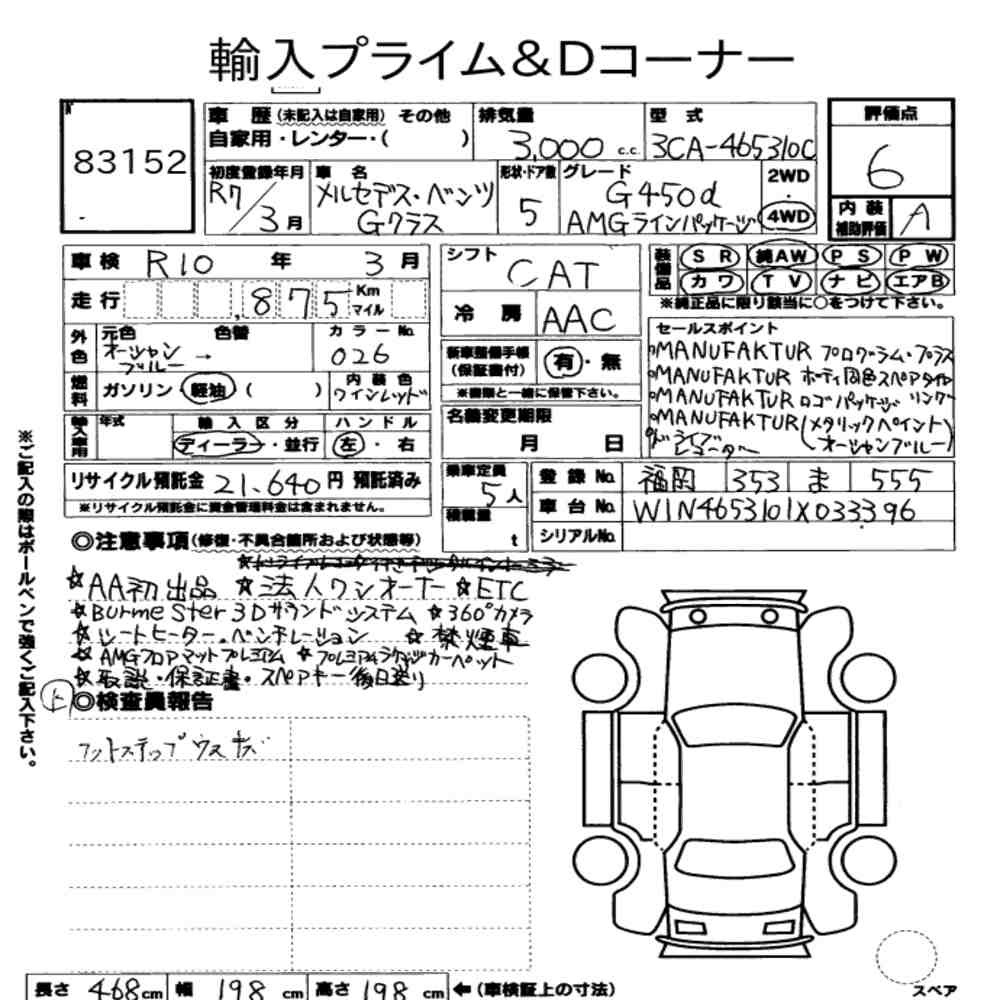 輸入プライム&Dコーナー
83152
車 歴 (未記入は自家用) その他
自家用・レンター・( )
排気量
3,000 c.c.
型 式
3CA-465310C
評価点
6
内装補助評価 A
初度登録年月
R7/3月
車 名
メルセデス・ベンツ
Gクラス
形状・ドア数
5
グレード
G450d
AMGラインパッケージ
2WD
・
4WD
車検 R10 年 3月
走行 ,875 Km マイル
外色 元色 色替
オーシャンブルー →
カラーNo.
026
燃料 ガソリン・軽油・( )
内装色
ワインレッド
輸入車用 年式
輸入区分
ディーラー・並行
ハンドル
左・右
リサイクル預託金 21,640円 預託済み
※リサイクル預託金に資金管理料金は含まれません。
シフト
CAT
冷 房 AAC
新車整備手帳
(保証書付)
有・無
※書類と一緒に保管下さい。
名義変更期限
月 日
乗車定員
5人
積載量
t
装備品 SR 純AW PS PW
カワ TV ナビ エアB
※純正品に限り該当に○をつけて下さい。
セールスポイント
○MANUFAKTUR プログラム・プラス
○MANUFAKTUR ボディ同色スペアタイヤ
○MANUFAKTUR ロゴパッケージ リング
○MANUFAKTUR(メタリックペイント)
オーシャンブルー)
○ドライブレコーダー
登録No. 福岡 353 ま 555
車台No. W1N4653101X033396
シリアルNo.
※ご記入の際はボールペンで強くご記入下さい。
◎注意事項(修復・不具合箇所および状態等)
☆AA初出品 ☆法人ワンオーナー ☆ETC
☆Burmester 3Dサウンドシステム ☆360°カメラ
☆シートヒーター・ベンチレーション ☆禁煙車
☆AMGフロアマットプレミアム ☆プレミアムラゲッジカーペット
☆取説・保証書・スペアキー後日送り
◎検査員報告
フットステップ ウスキズ
スペア
長さ 468cm 幅 198cm 高さ 198cm ←(車検証上の寸法)